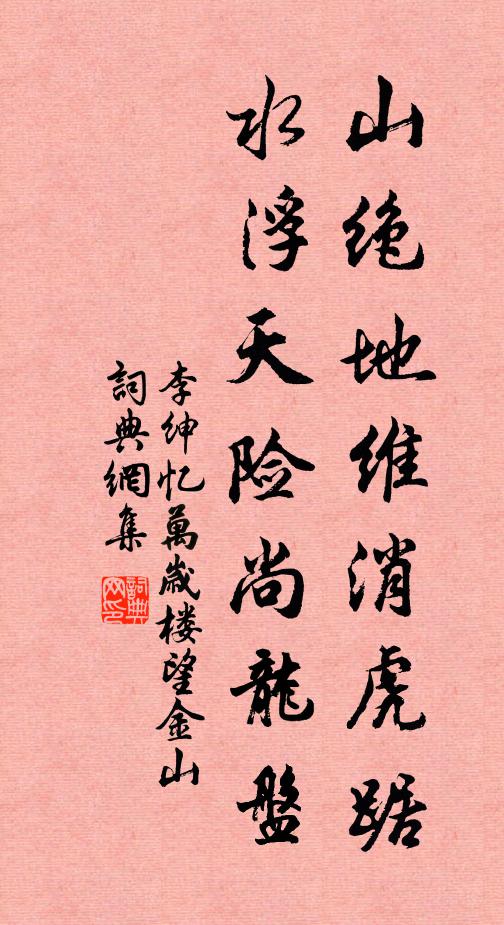 山绝地维消虎踞
水浮天险尚龍盤
李绅忆萬歲楼望金山
詞典網集
詞典网印